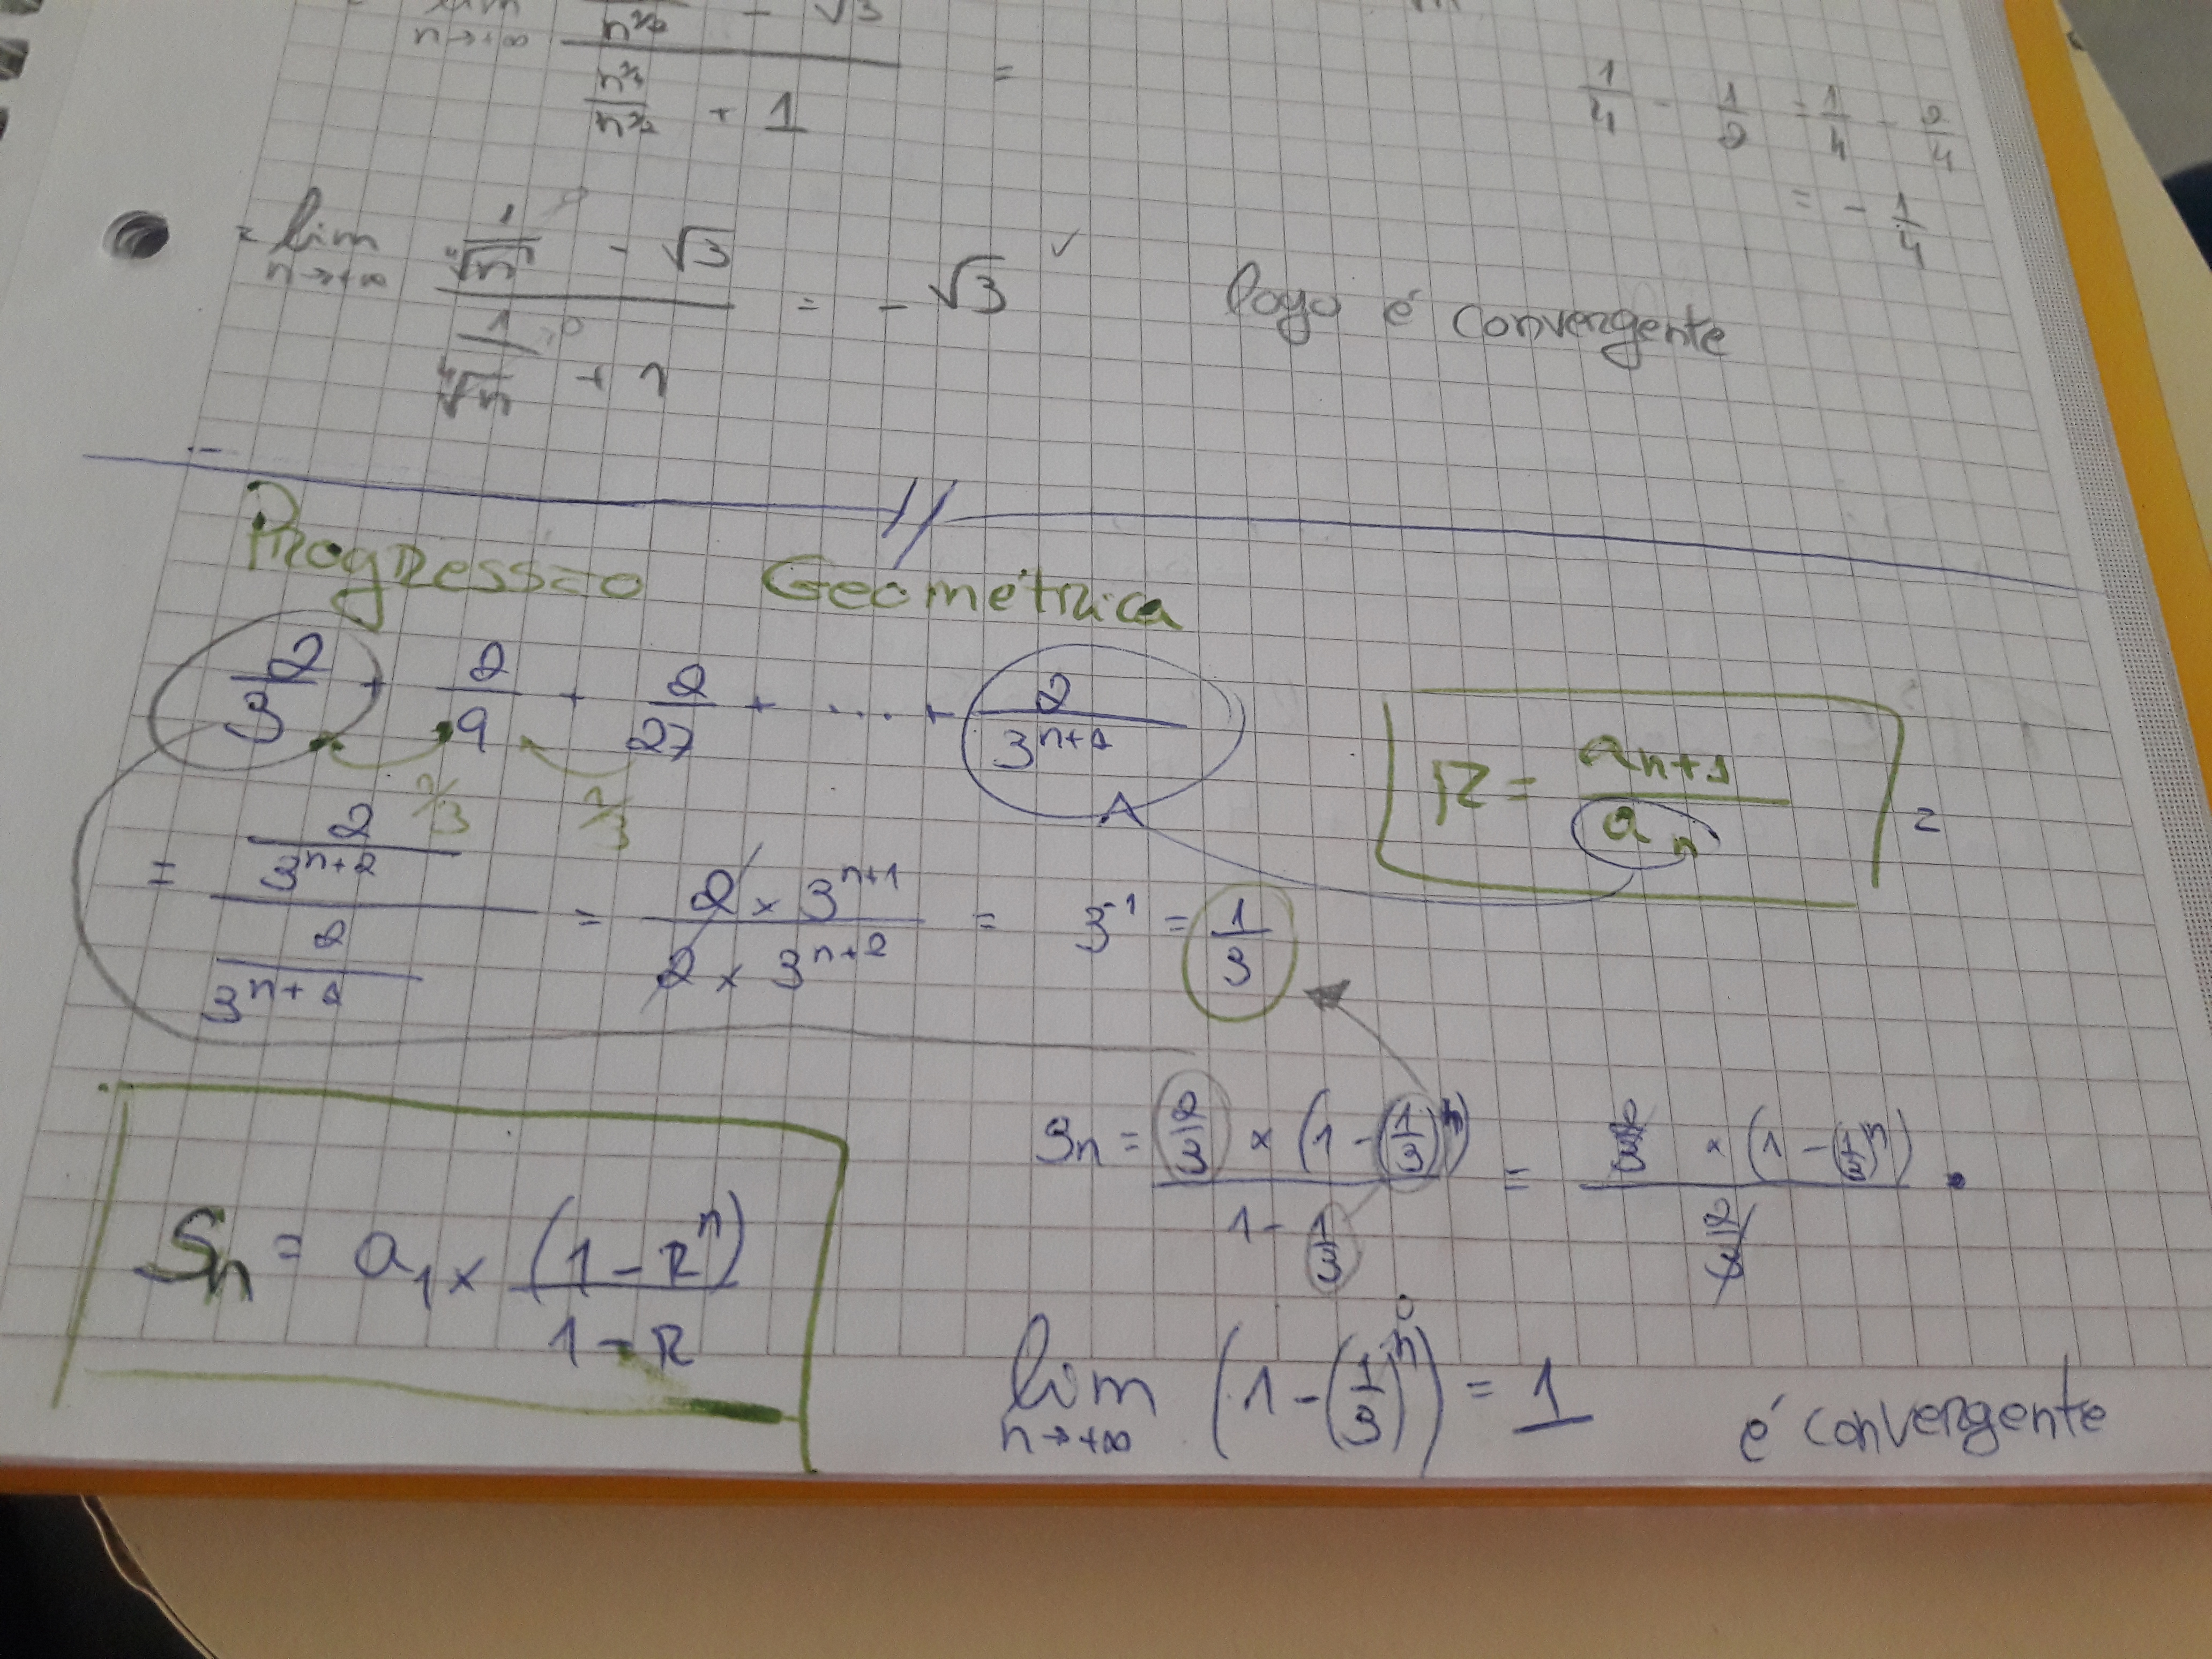 lim n→+∞ n^{3/2} - √3
n^{3/2} + 1 =
1/4 - 1/2 = 1/4 - 2/4
= - 1/4
= lim n→+∞ (1/√n - √3) / (1/∜n + 1) = - √3 ✓ logo é convergente
Progressão Geométrica
2/3 + 2/9 + 2/27 + ... + 2/3^{n+1}
1/3 1/3
R = a_{n+1} / a_n =
= (2/3^{n+2}) / (2/3^{n+1}) = (2 × 3^{n+1}) / (2 × 3^{n+2}) = 3^{-1} = 1/3
Sn = (2/3 × (1 - (1/3)^n)) / (1 - 1/3) = (2/3 × (1 - (1/3)^n)) / (2/3) .
Sn = a_1 × (1 - R^n) / (1 - R)
lim n→+∞ (1 - (1/3)^n) = 1 é convergente